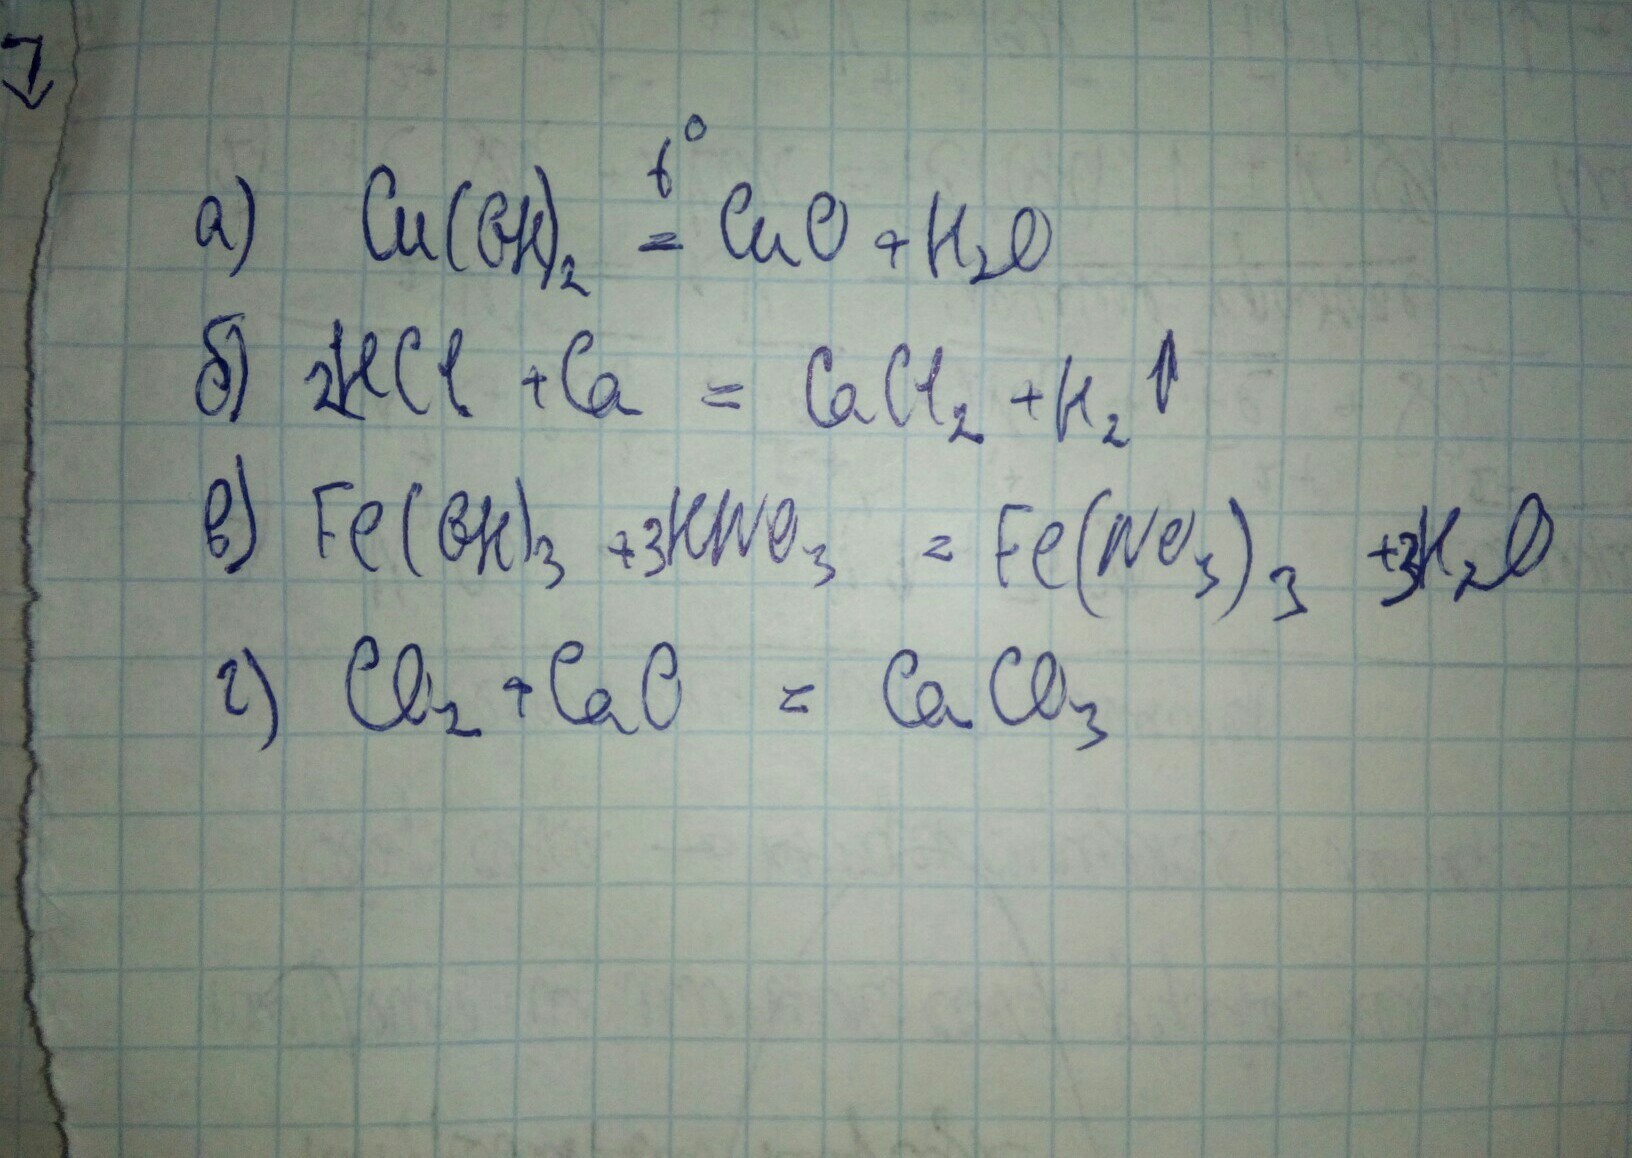 а) Cu(OH)₂ t°= CuO + H₂O
б) 2HCl + Ca = CaCl₂ + H₂↑
в) Fe(OH)₃ + 3HNO₃ = Fe(NO₃)₃ + 3H₂O
г) CO₂ + CaO = CaCO₃